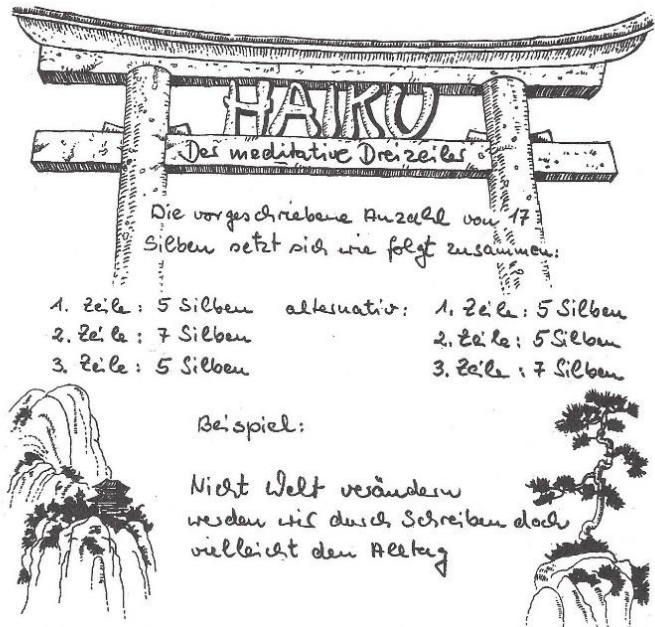 HAIKU
Der meditative Dreizeiler
Die vorgeschriebene Anzahl von 17
Silben setzt sich wie folgt zusammen:
1. Zeile: 5 Silben alternativ: 1. Zeile: 5 Silben
2. Zeile: 7 Silben 2. Zeile: 5 Silben
3. Zeile: 5 Silben 3. Zeile: 7 Silben
Beispiel:
Nicht Welt verändern
werden wir durch Schreiben doch
vielleicht den Alltag